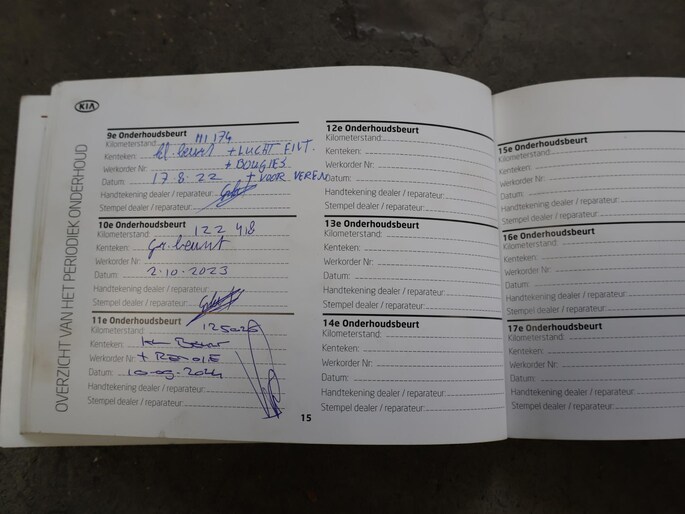 KIA
OVERZICHT VAN HET PERIODIEK ONDERHOUD
9e Onderhoudsbeurt
Kilometerstand: 111 174
Kenteken: kl. beurt + LUCHT FILT.
Werkorder Nr: + BOUGIES
Datum: 17.8.22 + VOOR VEREN
Handtekening dealer / reparateur:
Stempel dealer / reparateur:
10e Onderhoudsbeurt
Kilometerstand: 122 418
Kenteken: Gr. beurt
Werkorder Nr:
Datum: 2.10.2023
Handtekening dealer / reparateur:
Stempel dealer / reparateur:
11e Onderhoudsbeurt
Kilometerstand: 125026
Kenteken: Beurt
Werkorder Nr: +
Datum: 10-09-2024
Handtekening dealer / reparateur:
Stempel dealer / reparateur:
12e Onderhoudsbeurt
Kilometerstand:
Kenteken:
Werkorder Nr:
Datum:
Handtekening dealer / reparateur:
Stempel dealer / reparateur:
13e Onderhoudsbeurt
Kilometerstand:
Kenteken:
Werkorder Nr:
Datum:
Handtekening dealer / reparateur:
Stempel dealer / reparateur:
14e Onderhoudsbeurt
Kilometerstand:
Kenteken:
Werkorder Nr:
Datum:
Handtekening dealer / reparateur:
Stempel dealer / reparateur:
15
15e Onderhoudsbeurt
Kilometerstand:
Kenteken:
Werkorder Nr:
Datum:
Handtekening dealer / reparateur:
Stempel dealer / reparateur:
16e Onderhoudsbeurt
Kilometerstand:
Kenteken:
Werkorder Nr:
Datum:
Handtekening dealer / reparateur:
Stempel dealer / reparateur:
17e Onderhoudsbeurt
Kilometerstand:
Kenteken:
Werkorder Nr:
Datum:
Handtekening dealer / reparateur:
Stempel dealer / reparateur: